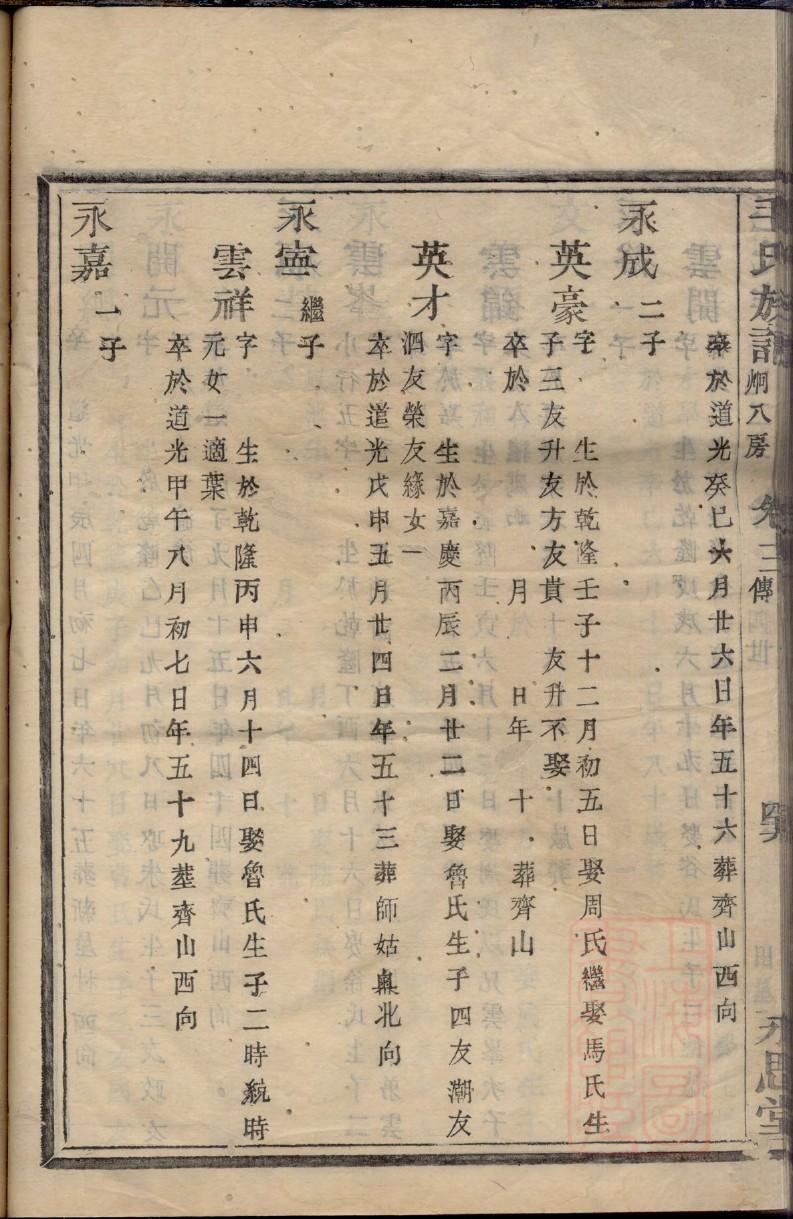 王氏族譜 炯八房 卷三 傳 四世 永思堂
卒於道光癸巳六月廿六日年五十六葬齊山西向
永成 二子
英豪 字 生於乾隆壬子十二月初五日娶周氏繼娶馬氏生
子三友升友方友貴 友升不娶
卒於 月 日年 十 葬齊山
英才 字 生於嘉慶丙辰二月廿二日娶魯氏生子四友潮友
泗友榮友緣女一
卒於道光戊申五月廿四日年五十三葬師姑㠗北向
永寍 繼子
雲祥 字 生於乾隆丙申六月十四日娶魯氏生子二時統時
元女一適葉
卒於道光甲午八月初七日年五十九塟齊山西向
永嘉 一子